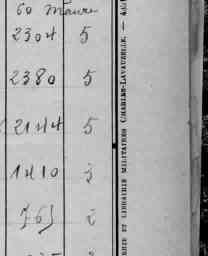 60 Mauri
2304 5
2380 5
2144 5
1410 3
763 2
ERIE ET LIBRAIRIE MILITAIRES CHARLES-LAVAUZELLE. —